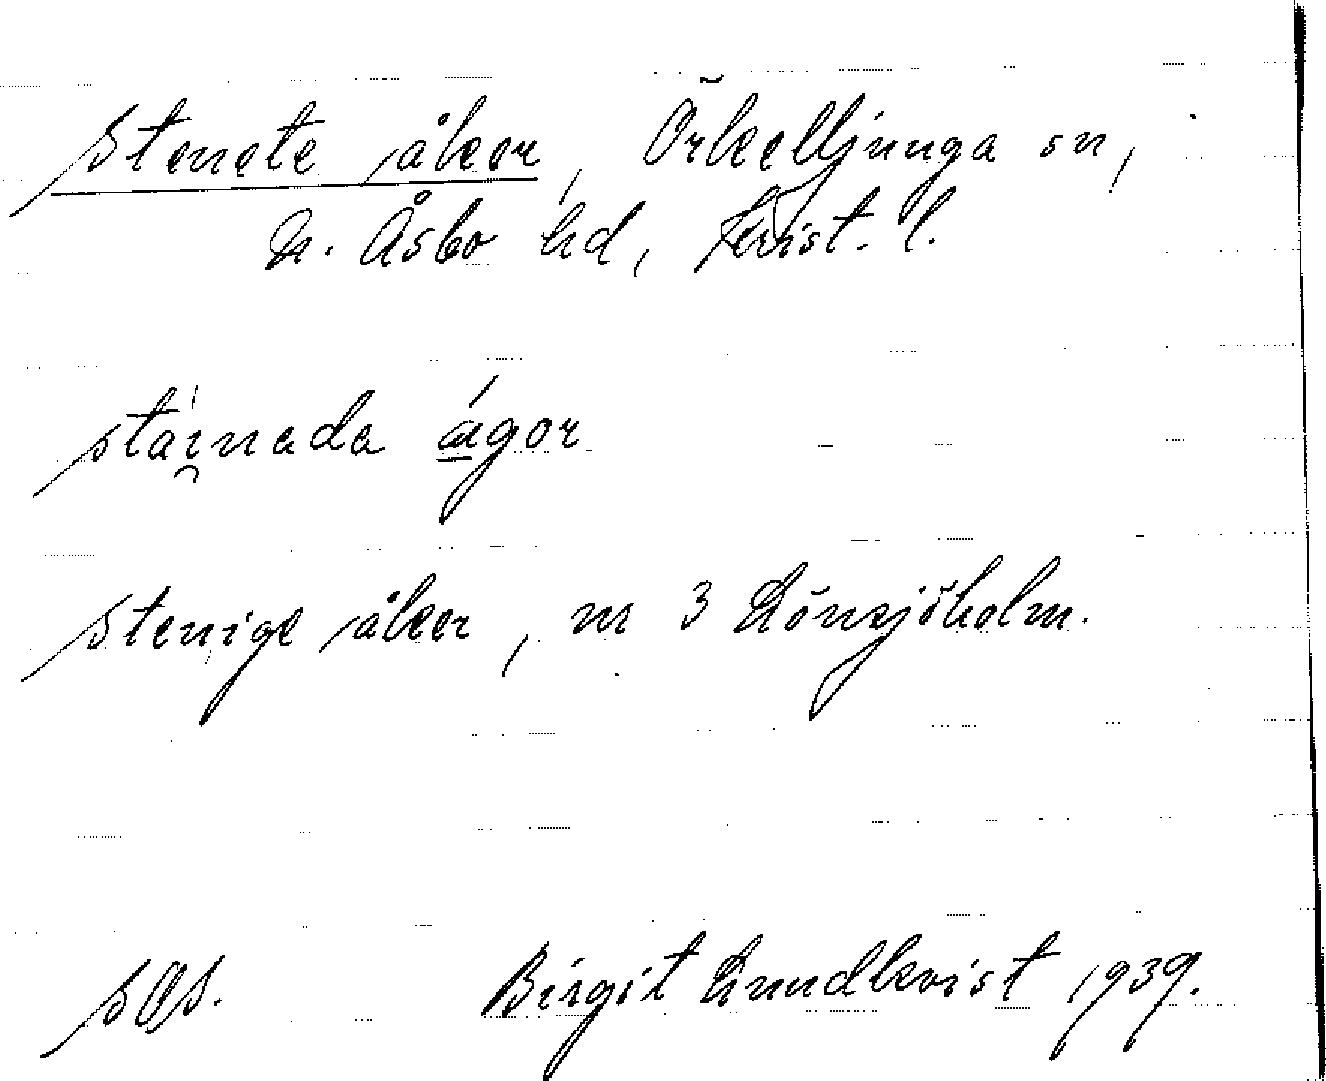 Stenete åker, Örkelljunga sn,
N. Åsbo hd, Krist. l.
stai̯nada ágor
Stenige åker, nr 3 Lönsjöholm.
sOs. Birgit Lundkvist 1939.